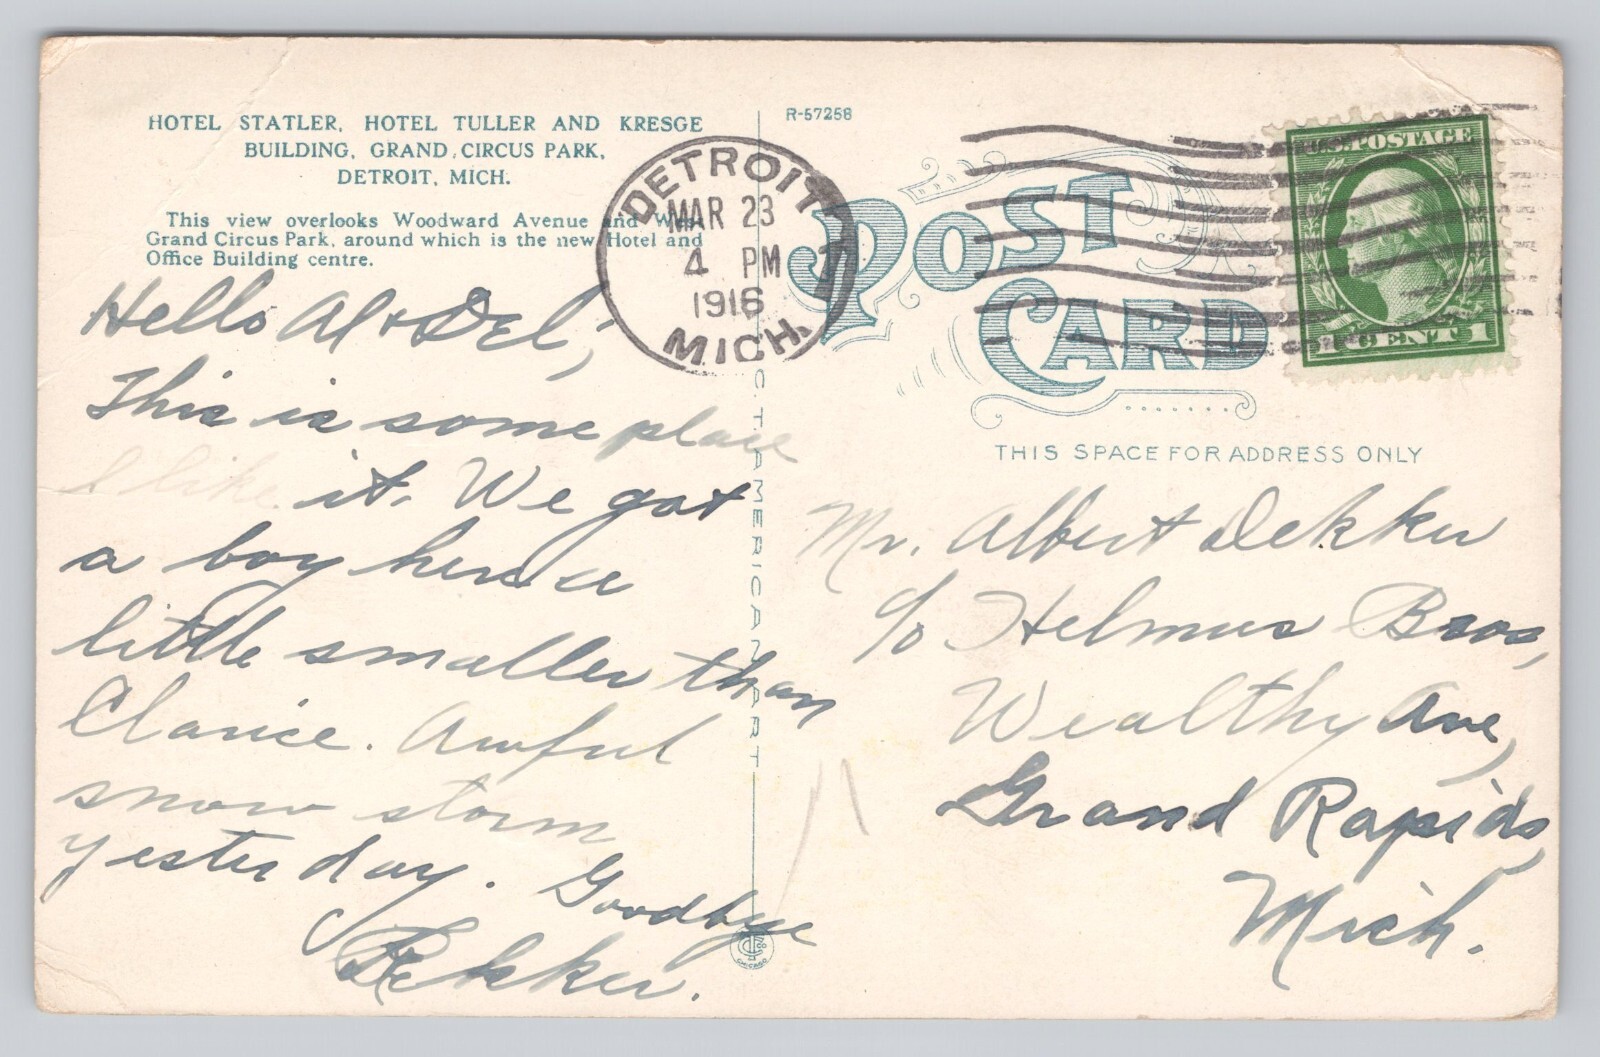 HOTEL STATLER, HOTEL TULLER AND KRESGE
BUILDING, GRAND CIRCUS PARK,
DETROIT, MICH.
This view overlooks Woodward Avenue and West
Grand Circus Park, around which is the new Hotel and
Office Building centre.
Hello Al & Del,
This is some place
I like it. We got
a boy here a
little smaller than
Clarice. Awful
snow storm
yesterday. Goodbye
Dekker.
R-57258
DETROIT
MAR 23
4 PM
1916
MICH.
POST
CARD
U.S. POSTAGE
1 CENT 1
THIS SPACE FOR ADDRESS ONLY
C. T. AMERICAN ART
CHICAGO
Mr. Albert Dekker
c/o Helmus Bros,
Wealthy Ave,
Grand Rapids,
Mich.